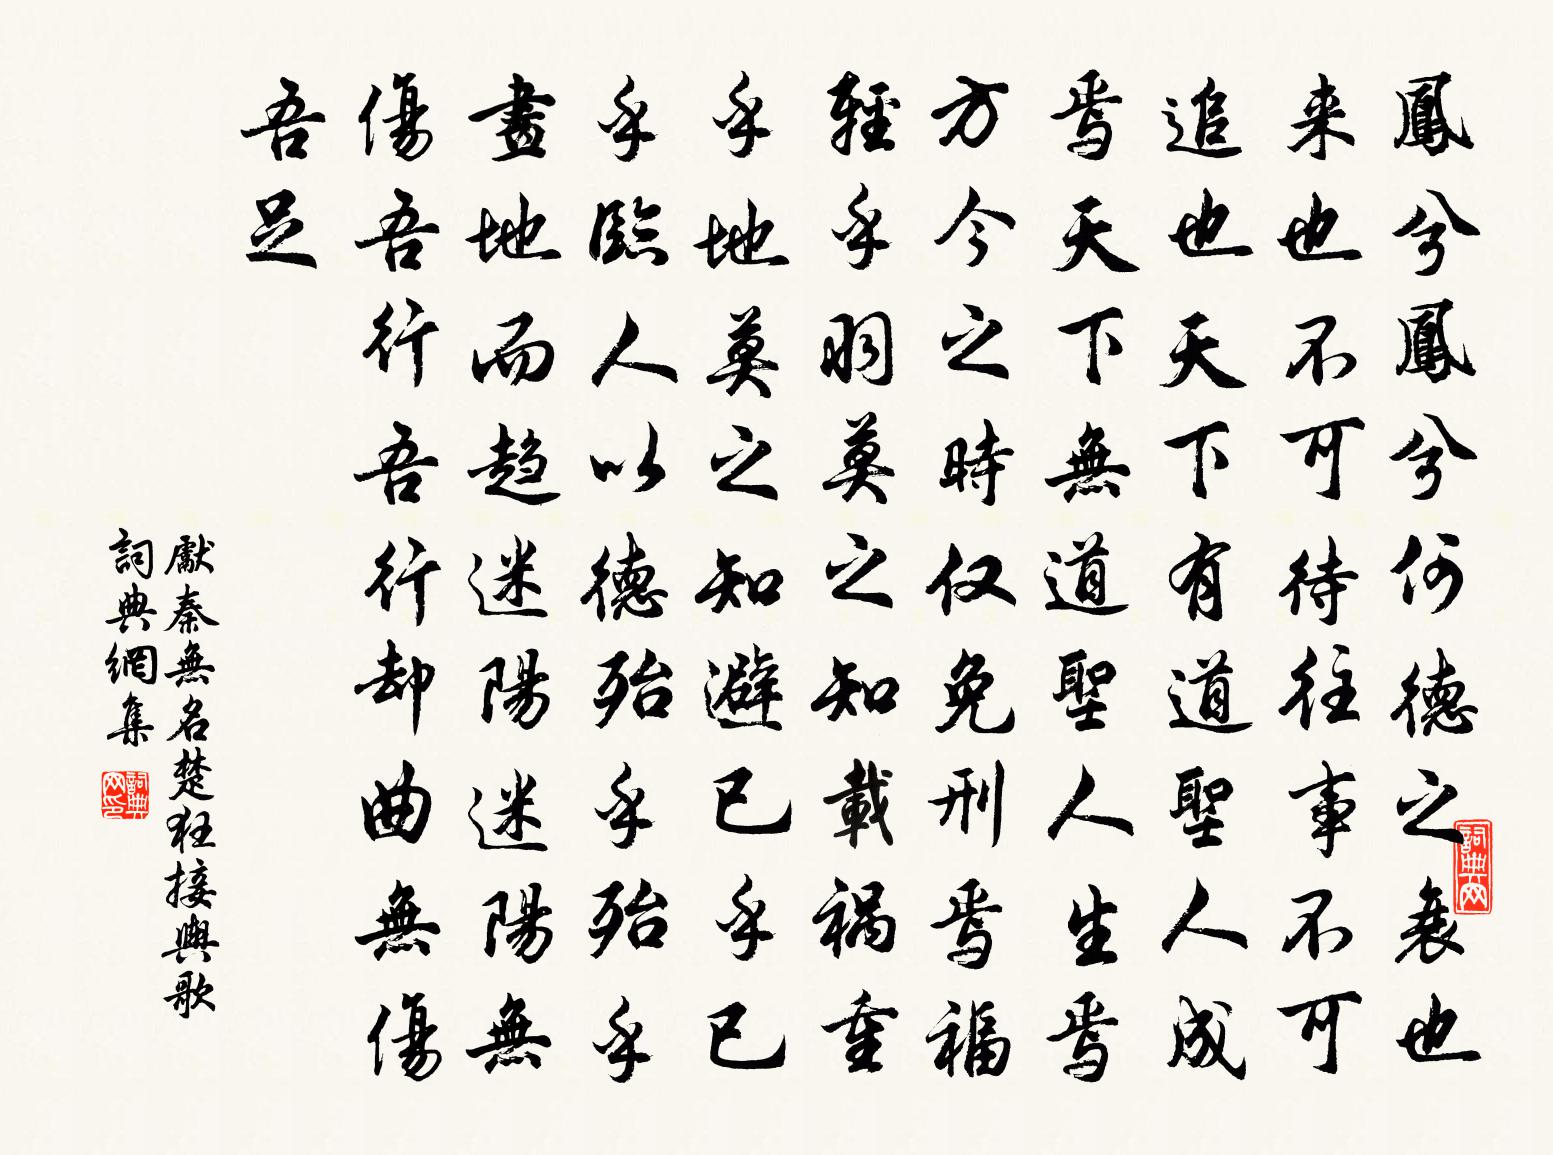 鳳兮鳳兮何德之衰也
来也不可待往事不可
追也天下有道聖人成
焉天下無道聖人生焉
方今之時仅免刑焉福
輕乎羽莫之知載祸重
乎地莫之知避已乎已
乎臨人以德殆乎殆乎
畫地而趋迷陽迷陽無
傷吾行吾行却曲無傷
吾足
先秦無名楚狂接輿歌
詞典網集
詞典网印
詞典网